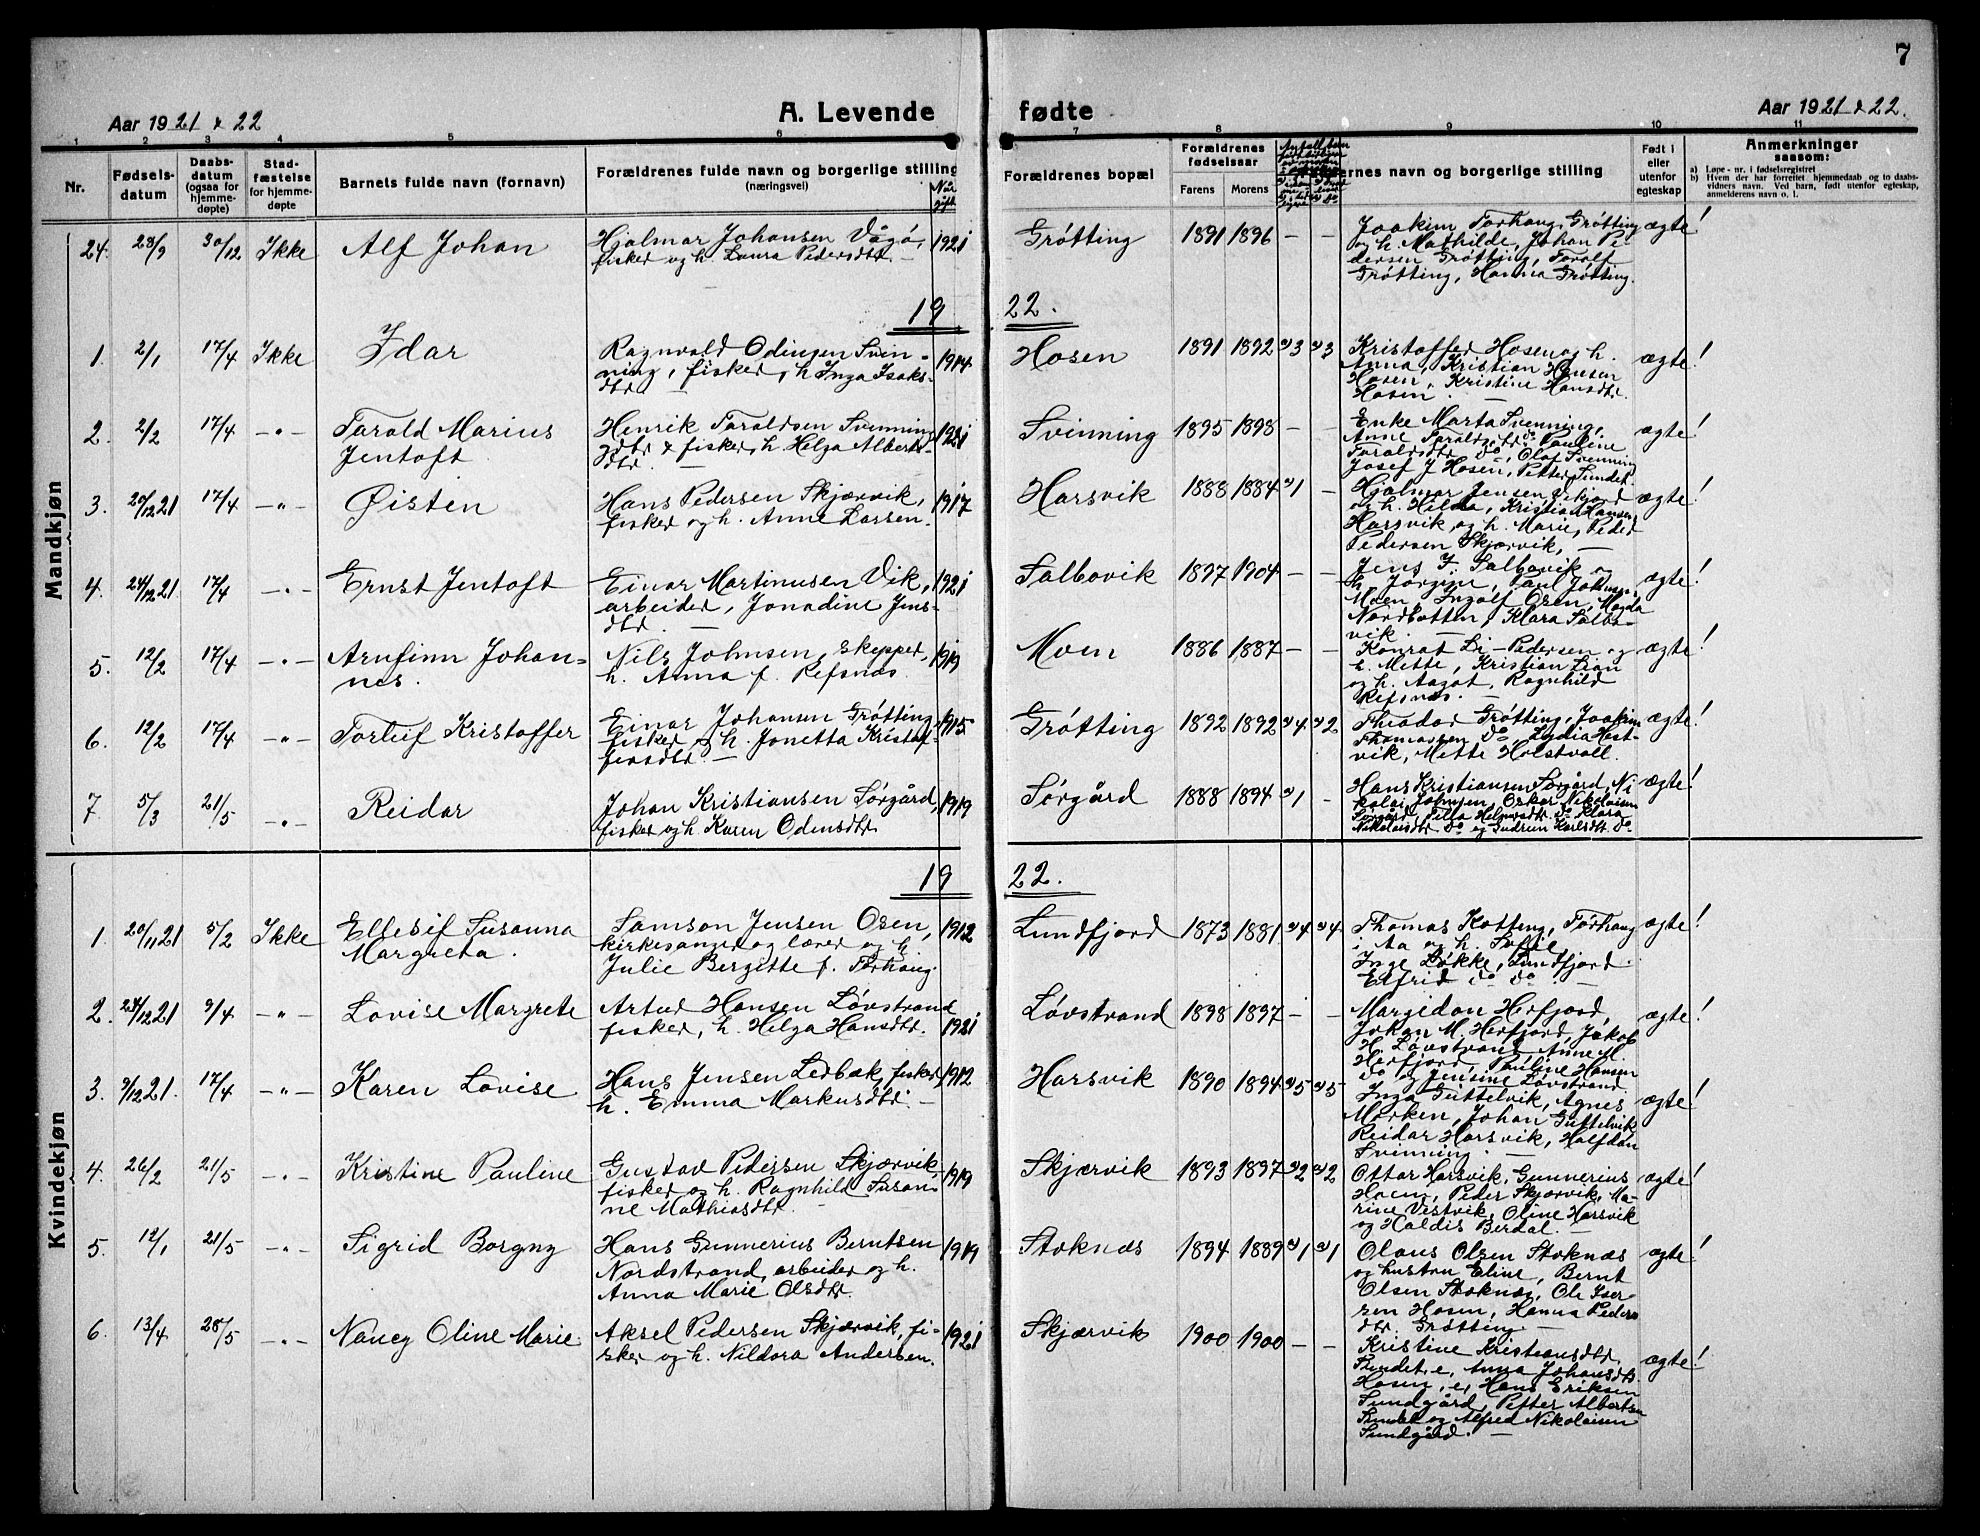 7
Aar 1921 & 22
A. Levende fødte
Aar 1921 & 22.
1 2 3 4 5 6 7 8 9 10 11
Nr.
Fødsels-
datum
Daabs-
datum
(ogsaa for
hjemme-
døpte)
Stad-
fæstelse
for hjemme-
døpte
Barnets fulde navn (fornavn)
Forældrenes fulde navn og borgerlige stilling
(næringsvei)
Naar
gift
Forældrenes bopæl
Forældrenes
fødselsaar
Farens Morens
ernes navn og borgerlige stilling
Født i
eller
utenfor
egteskap
Anmerkninger
saasom:
a) Løpe-nr. i fødselsregistret
b) Hvem der har forrettet hjemmedaab og to daabs-
vidners navn. Ved barn, født utenfor egteskap,
anmelderens navn o. l.
Mandkjøn
24. 28/9 30/12 Ikke Alf Johan
Hjalmar Johansen Vågø,
fisker og h. Laura Pedersdtr. —
1921 Grøtting 1891 1896 — —
Joakim Torhaug, Grøtting
og h. Mathilde, Johan Pe-
dersen Grøtting, Toralf
Grøtting, Hanna Grøtting.
ægte!
1922.
1. 2/1 17/4 Ikke Idar
Ragnvald Odinsen Svin-
ning, fisker, h Inga Isaks-
dtr —
1914 Hosen 1891 1892 3 3
Kristoffer Hosen og h.
Anna, Kristian Hansen
Hosen, Kristine Hansdtr.
Hosen. —
ægte!
2. 2/2 17/4 —"— Tarald Marius
Jentoft.
Henrik Taraldsen Svinning
gdbr & fisker, h. Helga Alberts-
dtr. —
1921 Svinning 1895 1898 — —
Enke Marta Svinning,
Anne Taraldsdtr do Pauline
Taraldsdtr do, Olaf Svenning
Josef J Hosen, Petter Sundet.
ægte!
3. 20/12 21 17/4 —"— Øisten
Hans Pedersen Skjærvik,
fisker og h. Anne Larsen.
1917 Harsvik 1888 1884 1 —
Hjalmar Jensen
og h. Hilda, Kristian Hansen
Harsvik og h. Marie, Peder
Pedersen Skjærvik, —
ægte!
4. 24/12 21 17/4 —"— Ernst Jentoft
Einar Martinusen Vik,
arbeider, Jonadine Jens-
dtr. —
1921 Salbovik 1897 1904 — —
Jens F. Salbovik og
h. Jørgine, Paul Johnsen
Moen, Ingolf Osen, Magda
Nordbotten, Klara Salbo-
vik. —
ægte!
5. 12/2 17/4 —"— Arnfinn Johan-
nes.
Nils Johnsen, skipper,
h. Anna f. Refsnæs.
1919 Moen 1886 1887 — —
Konrat Li-Pedersen og
h. Mette, Kristian Lian
og h. Aagot, Ragnhild
Refsnæs. —
ægte!
6. 12/2 17/4 —"— Torleif Kristoffer
Einar Johansen Grøtting,
fisker og h. Jonetta Kristof-
fersdtr. —
1915 Grøtting 1892 1892 4 2
Theodor Grøtting, Joakim
Thomassen do, Lydia Hest-
vik, Mette Holstvoll.
ægte!
7. 5/3 21/5 —"— Reidar
Johan Kristiansen Sørgård,
fisker og h. Karen Odensdtr.
1919 Sørgård 1888 1894 1 —
Hans Kristiansen Sørgård, Ni-
kolai Johnsen, Oskar Nikolaisen
Sørgård, Pella Helmersdtr. do Klara
Nikolaisdtr do og Gudrun Karlsdtr. do
ægte!
Kvindekjøn
1922.
1. 20/11 21 5/2 Ikke Ellesif Susanna
Margreta.
Samson Jensen Osen,
kirkesanger og lærer og h
Julie Bergitte f. Torhaug.
1912 Lundfjord 1873 1881 4 4
Thomas Kotteng, Torhaug
i Aa og h. Sofie,
Inge Løkke, Lundfjord.
Elfrid do do. —
ægte!
2. 27/12 21 9/4 —"— Lovise Margrete
Artur Hansen Løvstrand
fisker, h. Helga Hansdtr.
1921 Løvstrand 1898 1897 — —
Margidon Herfjord
Johan M. Herfjord, Jakob
H. Løvstrand, Anne M.
Herfjord, Pauline Hansen
do og Jensine Løvstrand
ægte!
3. 9/12 21. 17/4 —"— Karen Lovise
Hans Jensen Ledbæk, fisker
h. Emma Markusdtr. —
1912 Harsvik 1890 1894 5 5
Inga Guttelvik, Agnes
Morken, Johan Guttelvik
Reidar Harsvik, Halfdan
Svinning. —
ægte!
4. 26/2 21/5 —"— Kristine Pauline
Gustav Pedersen Skjærvik,
fisker og h. Ragnhild Susan-
ne Mathiasdtr. —
1919 Skjærvik 1893 1897 2 2
Ottar Harsvik, Gunnerius
Hoem, Peder Skjærvik, Ma-
rine Vestvik, Oline Harsvik
og Haldis Berdal. —
ægte!
5. 12/1 21/5 —"— Sigrid Borgny
Hans Gunnerius Berntsen
Nordstrand, arbeider og h.
Anna Marie Olsdtr.
1919 Stoknæs 1894 1889 1 1
Olaus Olsen Stoknæs
og hustru Eline, Bernt
Olsen Stoknæs, Ole Iver-
sen Hosen, Hanna Peders-
dtr Grøtting —
ægte!
6. 13/4 28/5 —"— Nancy Oline Marie
Aksel Pedersen Skjærvik, fi-
sker og h. Nildora Andersen.
1921 Skjærvik 1900 1900 — —
Kristine Kristiansdtr
Sundet, e, Anna Johansdtr.
Hosen, e, Hans Eriksen
Sundgård, Petter Albertsen
Sundet og Alfred Nikolaisen
Sundgård. —
ægte!